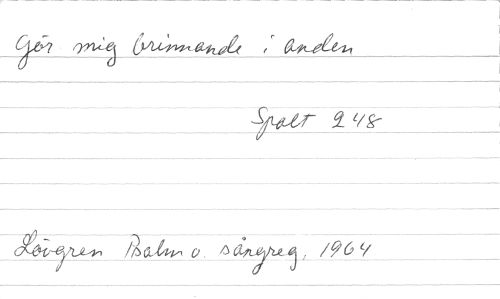 Gör mig brinnande i anden
Spalt 248
Lövgren Psalm o. sångreg. 1964